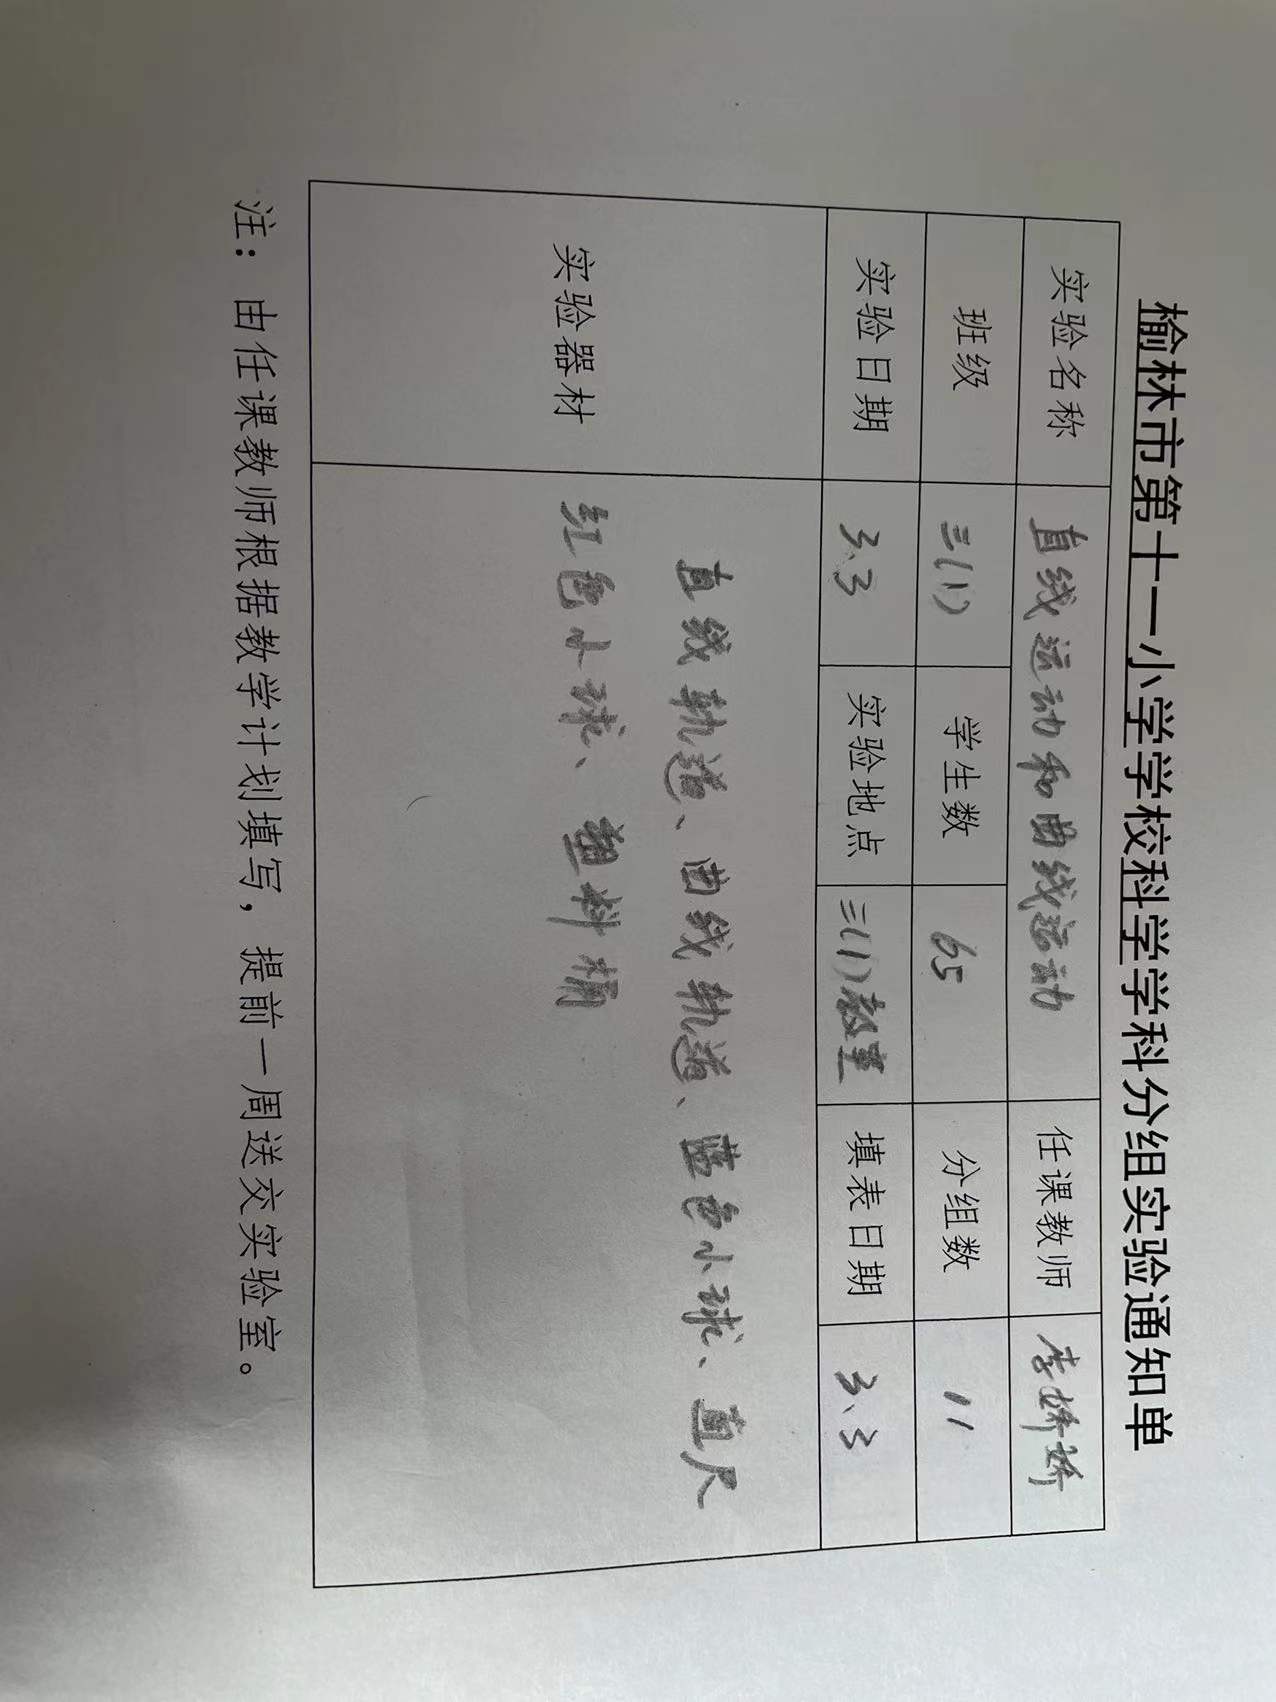 榆林市第十一小学学校科学学科分组实验通知单
实验名称 直线运动和曲线运动 任课教师 李娇娇
班级 三(1) 学生数 65 分组数 11
实验日期 3.3 实验地点 三(1)教室 填表日期 3.3
实验器材 直线轨道、曲线轨道、蓝色小球、直尺
红色小球、塑料桶
注：由任课教师根据教学计划填写，提前一周送交实验室。